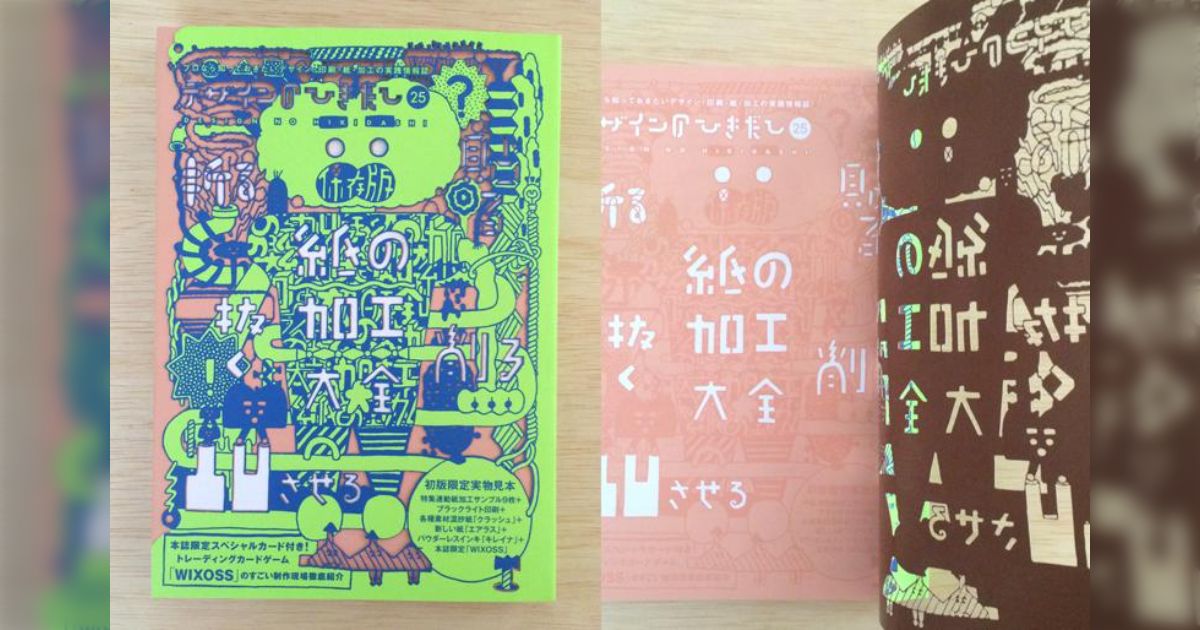 プロなら知っておきたいデザイン・印刷・紙・加工の実践情報誌
デザインのひきだし 25
DESIGN NO HIKIDASHI
?
保存版
折る
貼る
紙の
加工
大全
抜く
削る
!
凸凹させる
初版限定実物見本
特集連動紙加工サンプル9枚+
ブラックライト印刷+
各種素材混抄紙「クラッシュ」+
新しい紙「エアラス」+
パウダーレスインキ「キレイナ」+
本誌限定「WIXOSS」
本誌限定スペシャルカード付き!
トレーディングカードゲーム
「WIXOSS」のすごい制作現場徹底紹介
ら知っておきたいデザイン・印刷・紙・加工の実践情報誌
ザインのひきだし 25
NO HIKIDASHI
保存版
折る
貼
紙の
加工
大全
抜く
削
凸凹させる